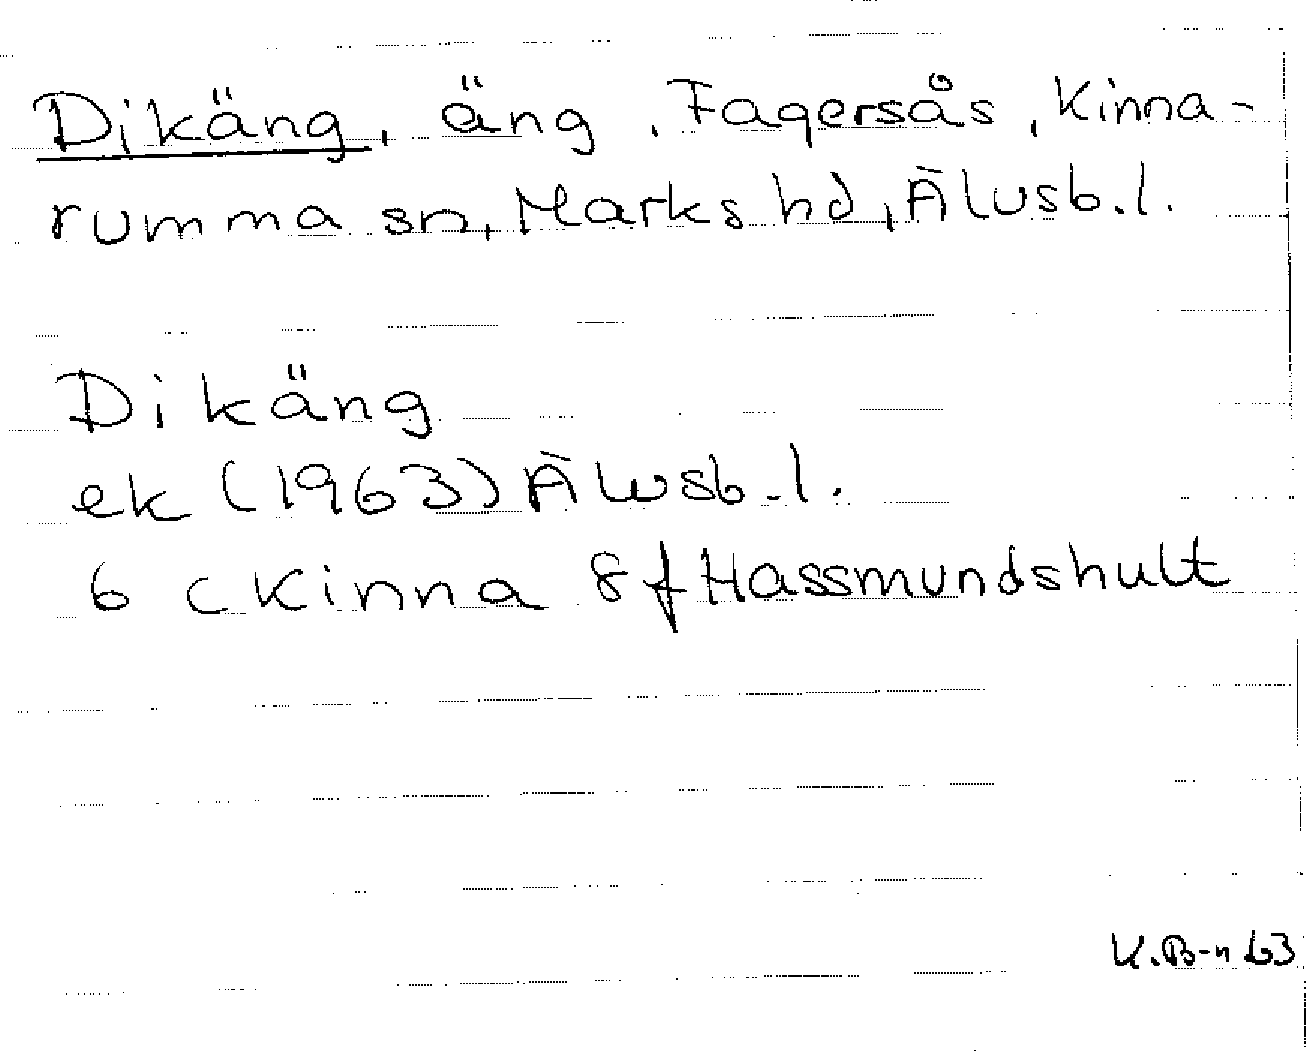 Dikäng, äng, Fagersås, Kinna-
rumma sn, Marks hd, Älvsb.l.
Dikäng
ek (1963) Älvsb.l.
6 c Kinna 8 f Hassmundshult
K.B-n 63